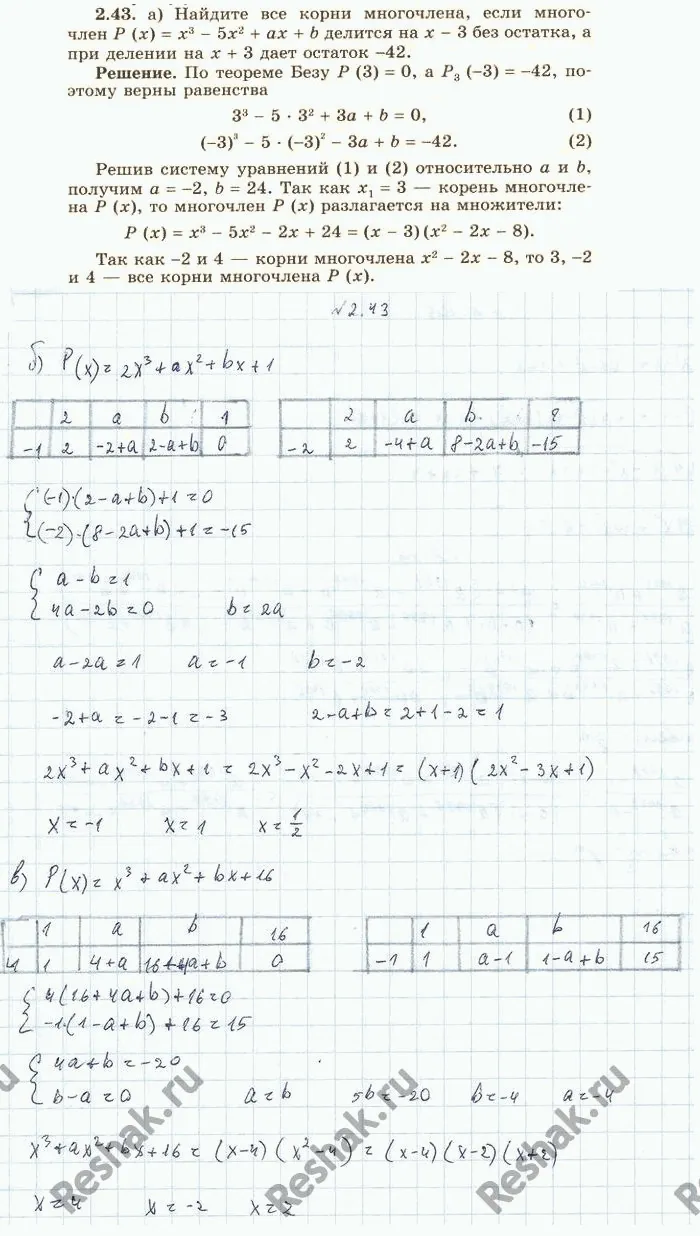 2.43. а) Найдите все корни многочлена, если много-
член P (x) = x³ – 5x² + ax + b делится на x – 3 без остатка, а
при делении на x + 3 дает остаток –42.
Решение. По теореме Безу P (3) = 0, а P₃ (–3) = –42, по-
этому верны равенства
3³ – 5 · 3² + 3a + b = 0, (1)
(–3)³ – 5 · (–3)² – 3a + b = –42. (2)
Решив систему уравнений (1) и (2) относительно a и b,
получим a = –2, b = 24. Так как x₁ = 3 — корень многочле-
на P (x), то многочлен P (x) разлагается на множители:
P (x) = x³ – 5x² – 2x + 24 = (x – 3) (x² – 2x – 8).
Так как –2 и 4 — корни многочлена x² – 2x – 8, то 3, –2
и 4 — все корни многочлена P (x).
№2.43
б) P(x) = 2x³ + ax² + bx + 1
2 a b 1 2 a b 1
-1 2 -2+a 2-a+b 0 -2 2 -4+a 8-2a+b -15
(-1)·(2-a+b)+1=0
(-2)·(8-2a+b)+1=-15
a-b=1
4a-2b=0 b=2a
a-2a=1 a=-1 b=-2
-2+a=-2-1=-3 2-a+b=2+1-2=1
2x³+ax²+bx+1 = 2x³-x²-2x+1 = (x+1)(2x²-3x+1)
x=-1 x=1 x=1/2
в) P(x) = x³+ax²+bx+16
1 a b 16 1 a b 16
4 1 4+a 16+4a+b 0 -1 1 a-1 1-a+b 15
4(16+4a+b)+16=0
-1·(1-a+b)+16=15
4a+b=-20
b-a=0 a=b 5b=-20 b=-4 a=-4
x³+ax²+bx+16 = (x-4)(x²-4) = (x-4)(x-2)(x+2)
x=4 x=-2 x=2
Reshak.ru
Reshak.ru
Reshak.ru